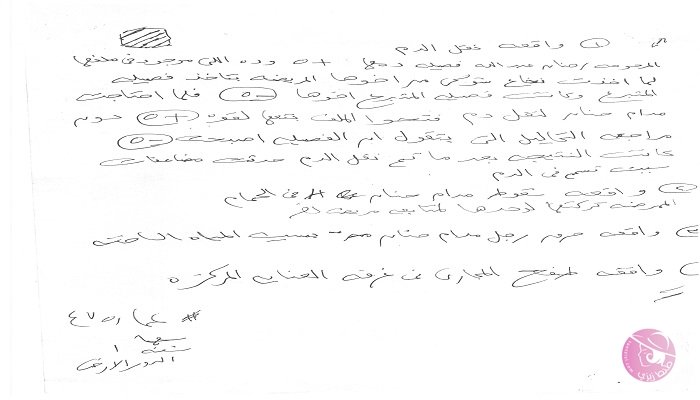 ① واقعه نقل الدم
المرحومه / حنان عبد الله فصيله دمها +O وده اللي موجود في ملفها
لما اخذت نخاع شوكي من اخوها المريضه بتاخذ فصيله
المتبرع وكانت فصيله المتبرع اخوها -O فلما احتاجت
مدام حنان لنقل دم فتحوا الملف +O دون
مراجعه التحاليل التي بتقول ان الفصيله اصبحت -O
كانت النتيجه بعد ما تم نقل الدم حدثت مضاعفات
سببت تسمم في الدم
② واقعه سقوط مدام حنان في الحمام
الممرضه تركتها لوحدها لمتابعه مريضه اخرى
واقعه حرق رجل مدام حنان بسبب المياه الساخنه
واقعه طفح المجاري في غرفه العنايه المركزه
# عماره ٤٧٥
شقه ١
الدور الارضي